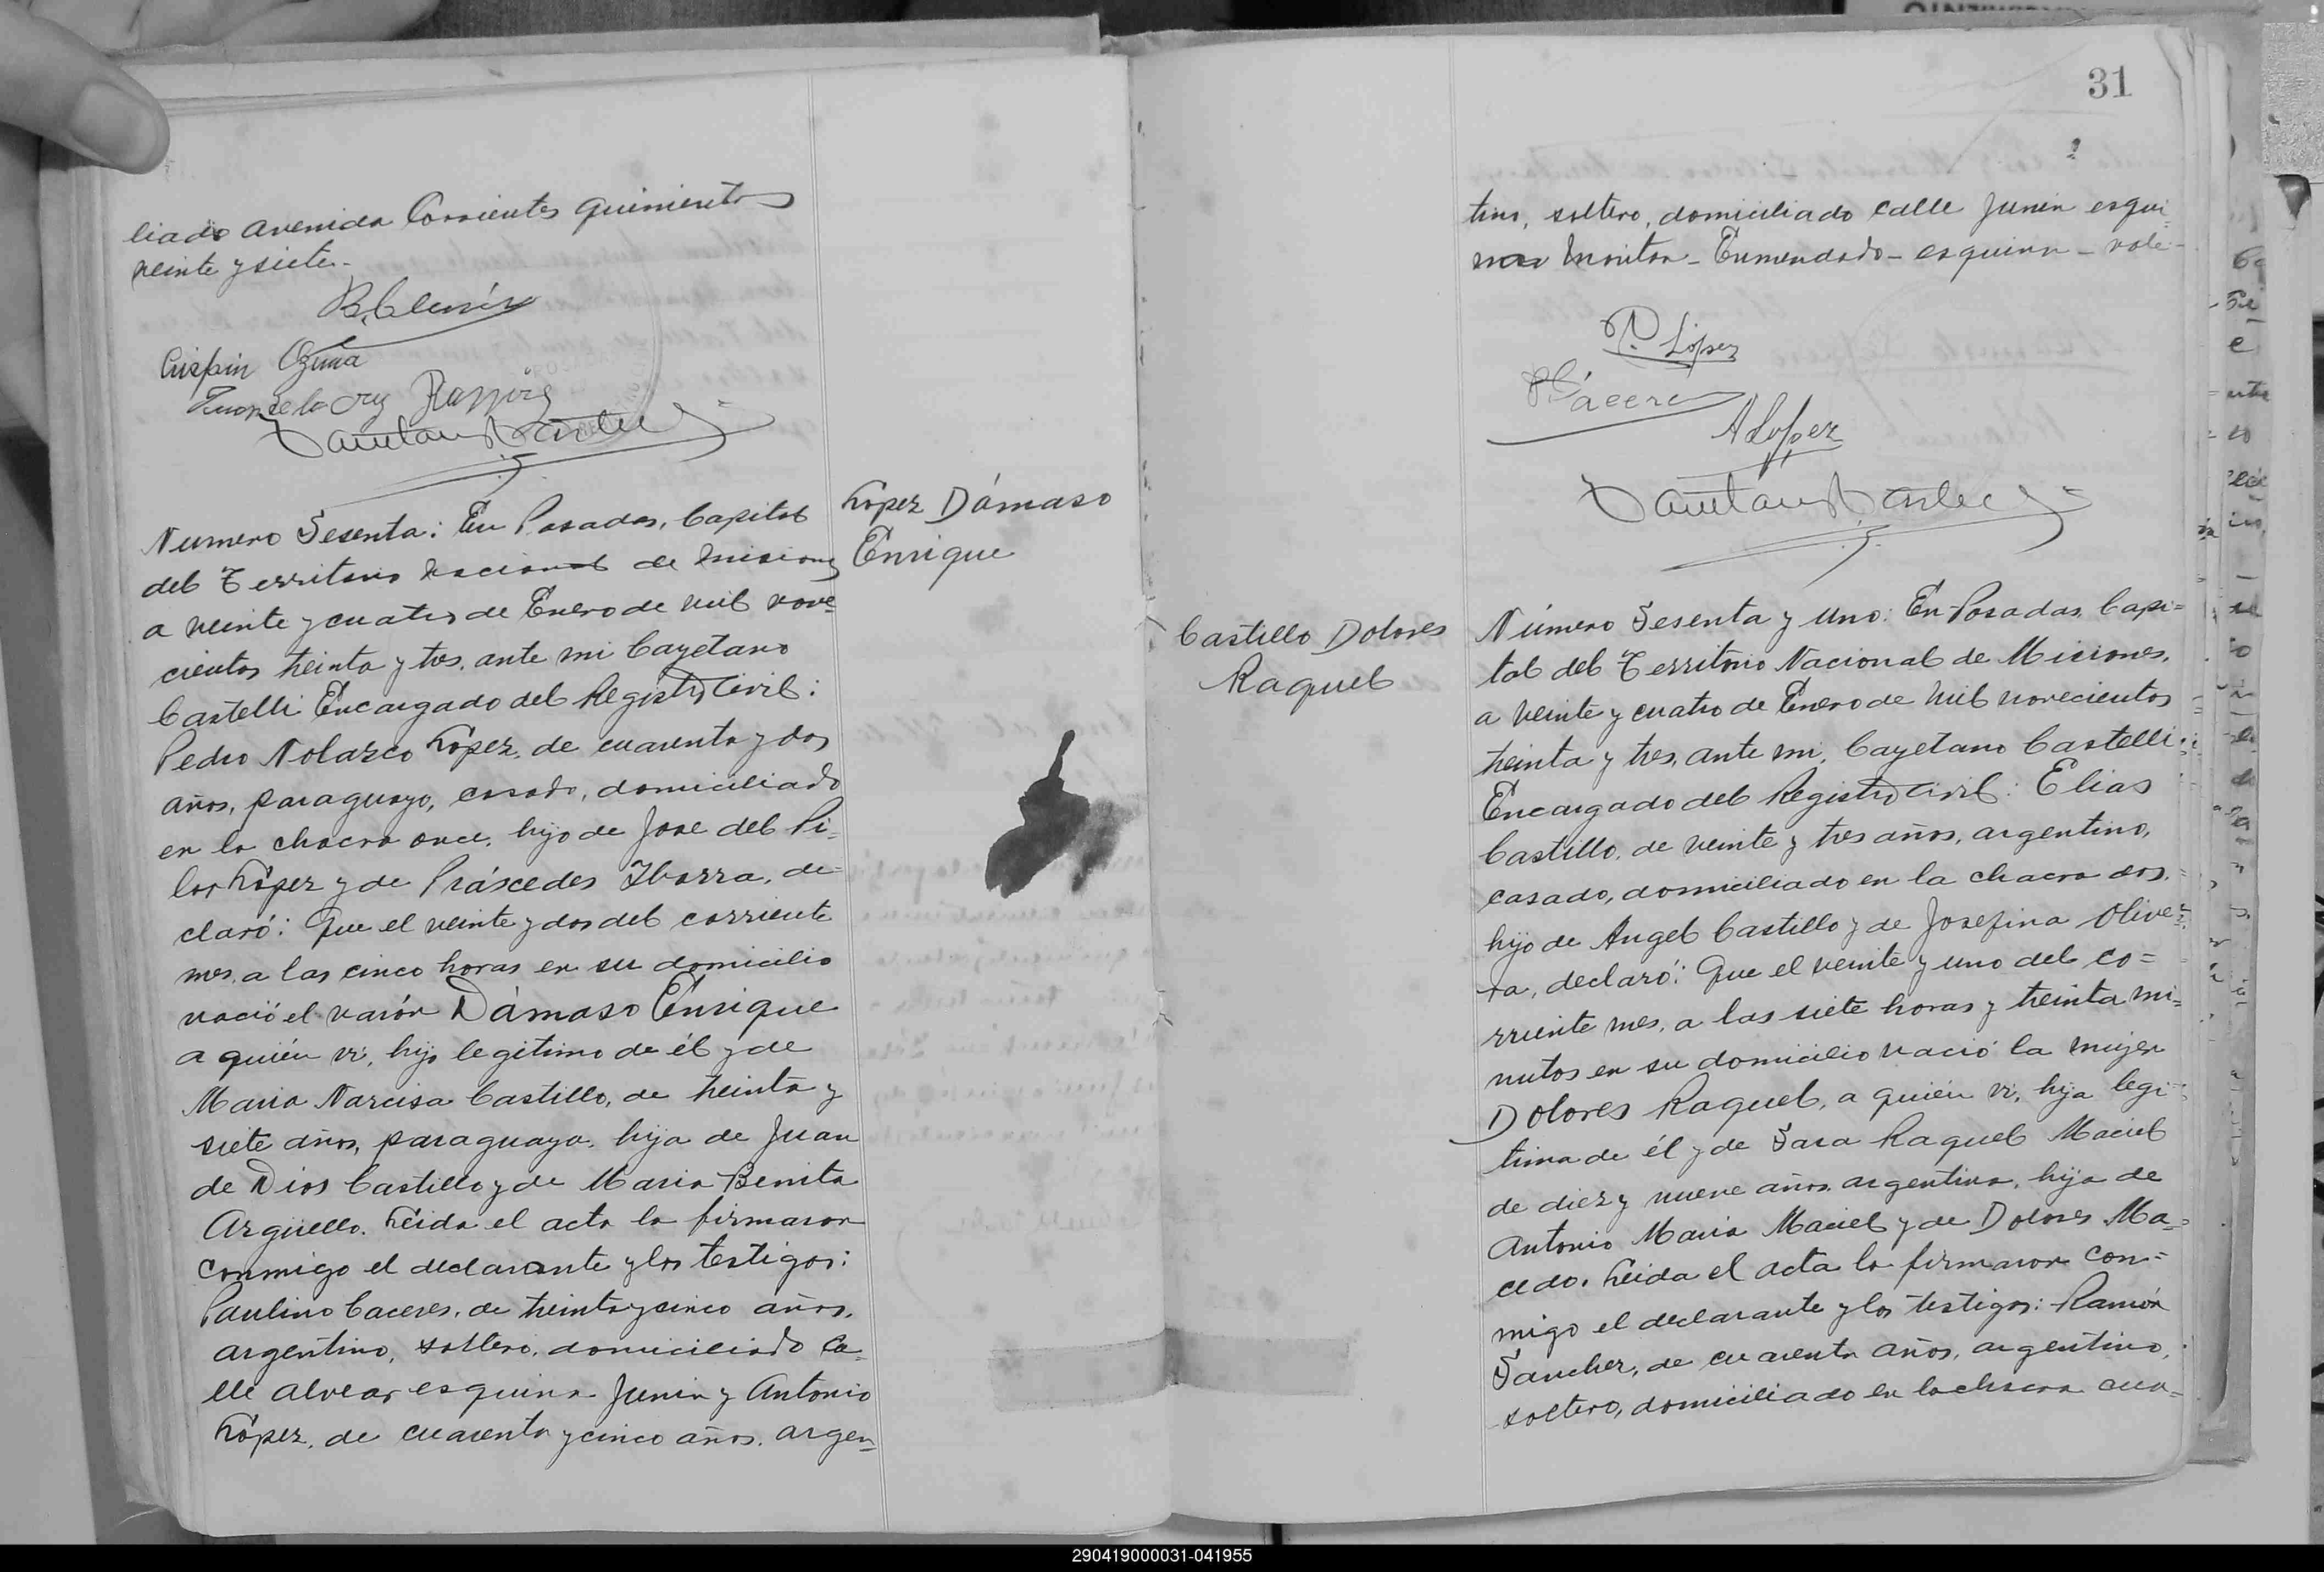 liado avenida Corrientes quinientos
veinte y siete.-
Crispin Ozuna
Juan de la Cruz Ramirez
Número Sesenta: En Posadas, Capital
del Territorio Nacional de Misiones
a veinte y cuatro de Enero de mil nove=
cientos treinta y tres, ante mi Cayetano
Castelli Encargado del Registro Civil:
Pedro Nolasco López, de cuarenta y dos
años, paraguayo, casado, domiciliado
en la chacra once, hijo de Jose del Pi=
lar López y de Práscedes Ybarra, de=
claró: Que el veinte y dos del corriente
mes, a las cinco horas en su domicilio
nació el varón Dámaso Enrique
a quién vi, hijo legitimo de él y de
Maria Narcisa Castillo, de treinta y
siete años, paraguaya, hija de Juan
de Dios Castillo y de Maria Benita
Argüello. Leida el acta la firmaron
conmigo el declarante y los testigos:
Paulino Caceres, de treinta y cinco años,
argentino, soltero, domiciliado ca=
lle alvear esquina Junin y Antonio
López, de cuarenta y cinco años, argen=
López Dámaso
Enrique
31
tino, soltero, domiciliado calle Junin esqui=
na Monitor - Enmendado - esquina - vale -
P. López
P. Cáceres
A López
Castillo Dolores
Raquel
Número Sesenta y uno: En Posadas, Capi=
tal del Territorio Nacional de Misiones,
a veinte y cuatro de Enero de mil novecientos
treinta y tres, ante mi, Cayetano Castelli
Encargado del Registro Civil: Elias
Castillo, de veinte y tres años, argentino,
casado, domiciliado en la chacra dos,
hijo de Angel Castillo y de Josefina Olive=
ra, declaró: Que el veinte y uno del co=
rriente mes, a las siete horas y treinta mi=
nutos en su domicilio nació la mujer
Dolores Raquel, a quién vi, hija legi=
tima de él y de Sara Raquel Maciel
de diez y nueve años, argentina, hija de
Antonio Maria Maciel y de Dolores Ma=
cedo. Leida el acta la firmaron con=
migo el declarante y los testigos: Ramón
Sanchez, de cuarenta años, argentino,
soltero, domiciliado en la chacra cua=
290419000031-041955